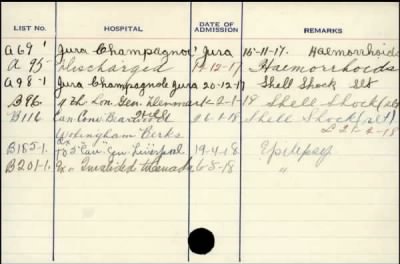 LIST NO. HOSPITAL DATE OF ADMISSION REMARKS
A 69' Jura Champagnol' Jura 15-11-17. Haemorrhoids
A 95- Discharged 1-12-17 Haemorrhoids
A 98-1 Jura Champagnole Jura 20-12-17 Shell Shock Slt
B96. 4th Lon. Gen. Denmark 1-2-18 Shell Shock (slt)
B116 Can. Conv. Bearwood 26-1-18 Shell Shock (slt)
Wokingham Berks D 21-2-18
B185-1. to 5 "Can" Gen Liverpool 19-4-18. Epilepsy
B201-1. Ex " Invalided to Canada 6-5-18 "